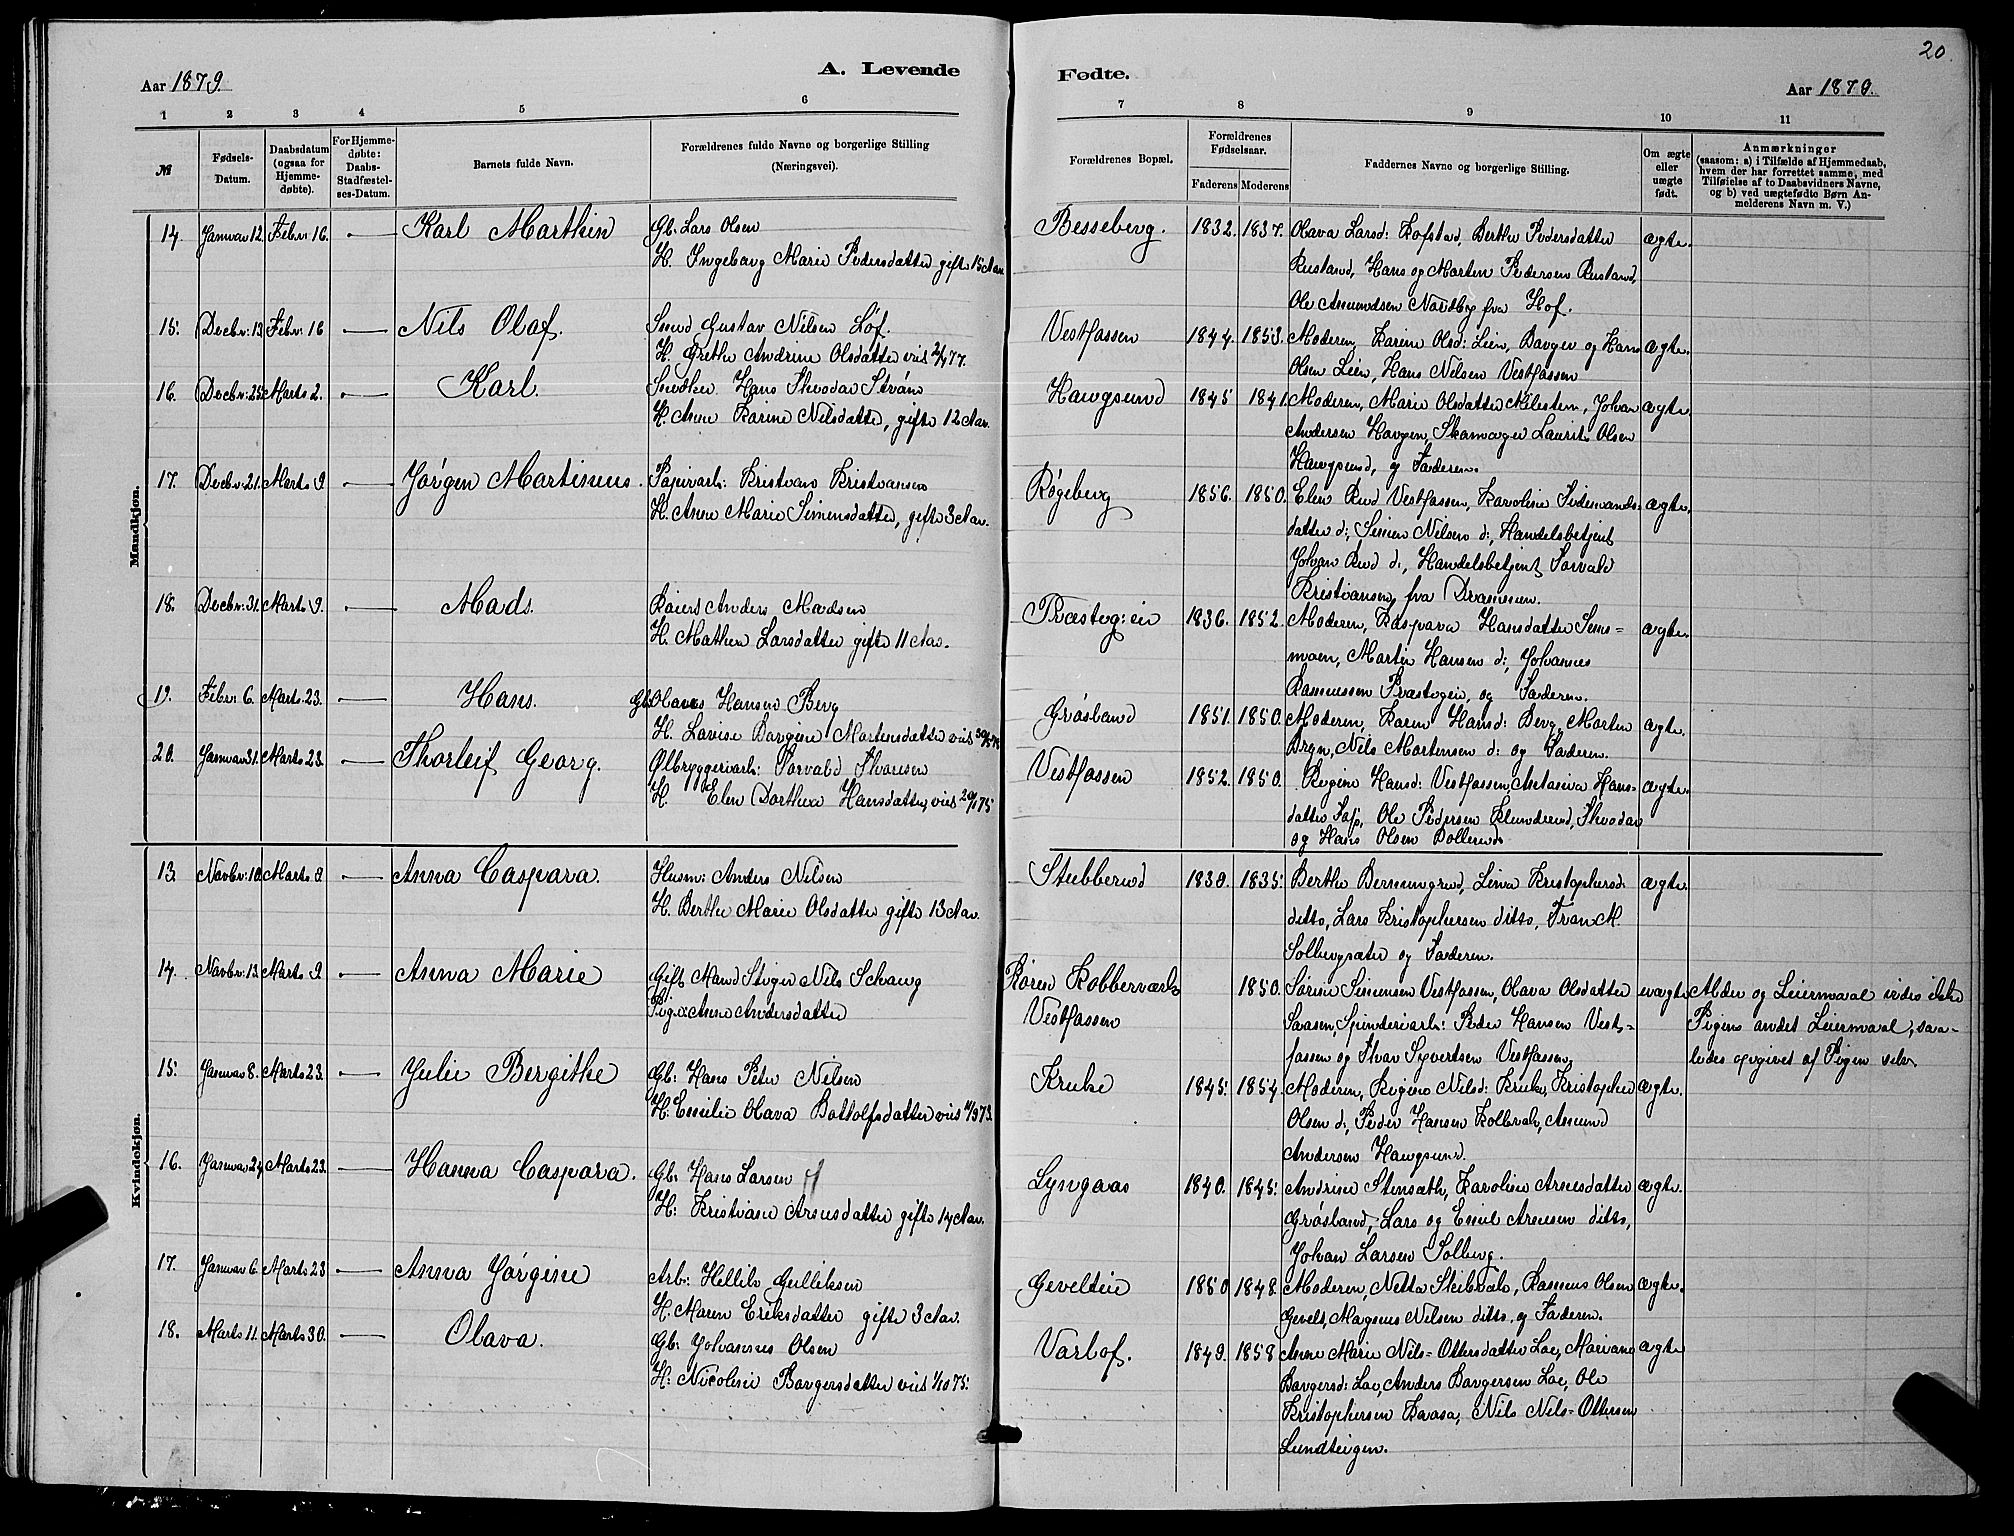 20.
A. Levende
Fødte.
Aar 1879.
Aar 1879.
1 2 3 4 5 6
7 8 9 10 11
№
Fødsels-Datum.
Daabsdatum (ogsaa for Hjemme-døbte).
For Hjemme-døbte: Daabs-Stadfæstel-ses-Datum.
Barnets fulde Navn.
Forældrenes fulde Navne og borgerlige Stilling (Næringsvei).
Forældrenes Bopæl.
Forældrenes Fødselsaar.
Faderens Moderens
Faddernes Navne og borgerlige Stilling.
Om ægte eller uægte født.
Anmærkninger
(saasom: a) i Tilfælde af Hjemmedaab,
hvem der har forrettet samme, med
Tilføielse af to Daabsvidners Navne,
og b) ved uægtefødte Børn An-
melderens Navn m. V.)
Mandkjøn.
14. Januar 12. Febr: 16. — Karl Marthin Gb. Lars Olsen Besseberg. 1832. 1837. Olava Larsd: Kofstad, Berthe Pedersdatter ægte.
H. Ingeborg Marie Pedersdatter gifte 15 Aar
Rustand, Hans og Marten Pedersen Rustand,
Ole Amundsen Nordby fra Hof.
15. Decbr: 13. Febr: 16 — Nils Olaf. Smed Gustav Nilsen Løf. Vestfossen 1844. 1853. Moderen, Karine Olsd: Lien, Borger og Hans ægte.
H. Grethe Andrine Olsdatter vied 2/4 77.
Olsen Lien, Hans Nilsen Vestfossen
16. Decbr: 25. Marts 2. — Karl. Snedker Hans Thvodar Strøm Haugsund 1845 1841. Moderen, Marie Olsdatter Milesten, Johan ægte.
H. Anne Karine Nilsdatter, gifte 12 Aar.
Andersen Haugen, Skomager Laurits Olsen
Haugsund, og Faderen.
17. Decbr: 21. Marts 9 — Jørgen Martinius. Papirarb: Kristian Kristiansen Røgeberg 1856. 1850. Elen Rud Vestfossen, Karoline Fidesvands- ægte.
H. Anne Marie Simensdatter, gifte 3 Aar.
datter d:, Simen Nilsen d:, Handelsbetjent
Johan Rud d:, Handelsbetjent Torvald
Kristiansen fra Drammen.
18. Decbr: 31. Marts 9. — Mads. Roiert Anders Madsen Præsteg:eie 1836. 1852. Moderen, Kaspara Hansdatter Sems= ægte.
H. Mathea Larsdatter gifte 11 Aar.
moen, Martin Hansen d:, Johannes
Rasmussen Præstegeie, og Faderen.
19. Febr: 6. Marts 23. — Hans. Gb: Olaves Hansen Berg Grøsland 1851. 1850. Moderen, Karen Hansd: Berg, Morten ægte.
H. Lovise Borgine Martensdatter vied
Bryn, Nils Mortensen d: og Faderen.
20. Januar 31. Marts 23. — Thorleif Georg. Ølbryggerarb: Torvald Thoresen Vestfossen 1852. 1850. Regine Hansd: Vestfossen, Antasiva Hans- ægte.
H. Elen Dorthea Hansdatter, vied 20/1 75
datter Fos, Ole Pedersen Klunderud, Thvodar
og Hans Olsen Bollerud.
Kvindekjøn.
13. Novbr: 10. Marts 9. — Anna Caspara. Husm: Anders Nilsen Stubberud 1830. 1835. Berthe Berningrud, Lina Kristophersd: ægte.
H. Berthe Marie Olsdatter gifte 13 Aar.
ditto, Lars Kristophersen ditto, Tron M.
Solbergsæter og Faderen.
14. Novbr: 13. Marts 9 — Anna Marie Gift Mand Stiger Nils Schaug Røren Kobberværk 1850. Sørine Simensen Vestfossen, Olava Olsdatter uægte Alder og Leiermaal vides ikke
Pige Anne Andersdatter Vestfossen
Saasen, Spinderiarb: Peder Hansen Vest=
Pigens andet Leiermaal, saa-
fossen og Thor Syvertsen Vestfossen
ledes opgivet af Pigen selv.
15. Januar 8. Marts 23. — Julie Bergithe Gb: Hans Peter Nilsen Kruke 1845. 1854. Moderen, Regine Nilsd: Kruke, Kristopher ægte.
H. Emilie Olava Bottolfsdatter vied 11/9 73.
Olsen d:, Peder Hansen Kolbræk, Amund
Andersen Haugsund.
16. Januar 24. Marts 23. — Hanna Caspara. Gb: Hans Larsen Lyngaas 1840. 1845. Andrine Stensæth, Karoline Arnesdatter ægte.
H: Kristiane Arnesdatter gifte 14 Aar.
Grøsland, Lars og Emil Arnesen ditto,
Johan Larsen Solberg.
17. Januar 6. Marts 23 — Anna Jørgine Arb: Hellik Gulliksen Gevelteie 1850 1848. Moderen, Netta Skibvæk, Rasmus Olsen ægte.
H. Maren Eriksdatter gifte 3 Aar.
Gevelt, Magnus Nilsen ditto, og Faderen.
18. Marts 11. Marts 30. — Olava. Gb: Johannes Olsen Varlof. 1849. 1858 Anne Marie Nils-Ottersdatter Loe, Mariane ægte
H: Nicoline Borgersdatter vied 1/10 75.
Borgersd: Loe, Anders Borgersen Loe, Ole
Kristophersen Kaasa, Nils Nils-Ottersen
Lundteigen.